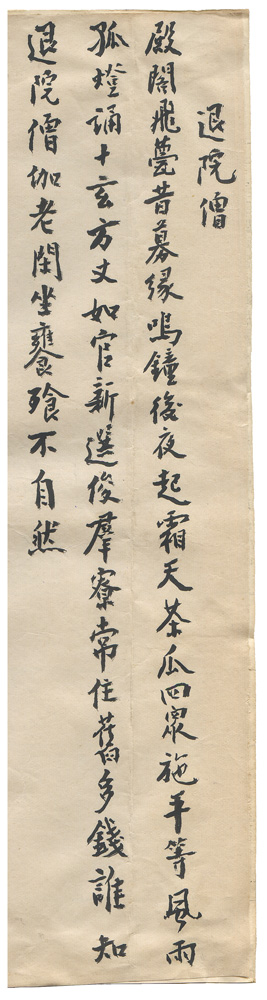 退院僧
殿閣飛甍昔募緣鳴鐘後夜起霜天茶瓜四眾施平等風雨
孤燈誦十玄方丈如官新選俊群寮常住舊多錢誰知
退院僧伽老閑坐饔飱不自然